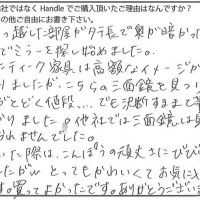 社ではなく Handle でご購入頂いたご理由はなんですか？
の他ご自由にお書き下さい。
っ越した部屋が夕長で奥が暗かった
でミラーを探し始めました。
ティーク家具は高額なイメージが
りましたが、こちらの三面鏡を見つ
がとどく値段…でも決断するまで
りました。他社では三面鏡は
られませんでした。
いた際は、こんぽうの頑丈さにびび
したが とってもかわいくてお気に
す。買ってよかったです。ありがとうござい